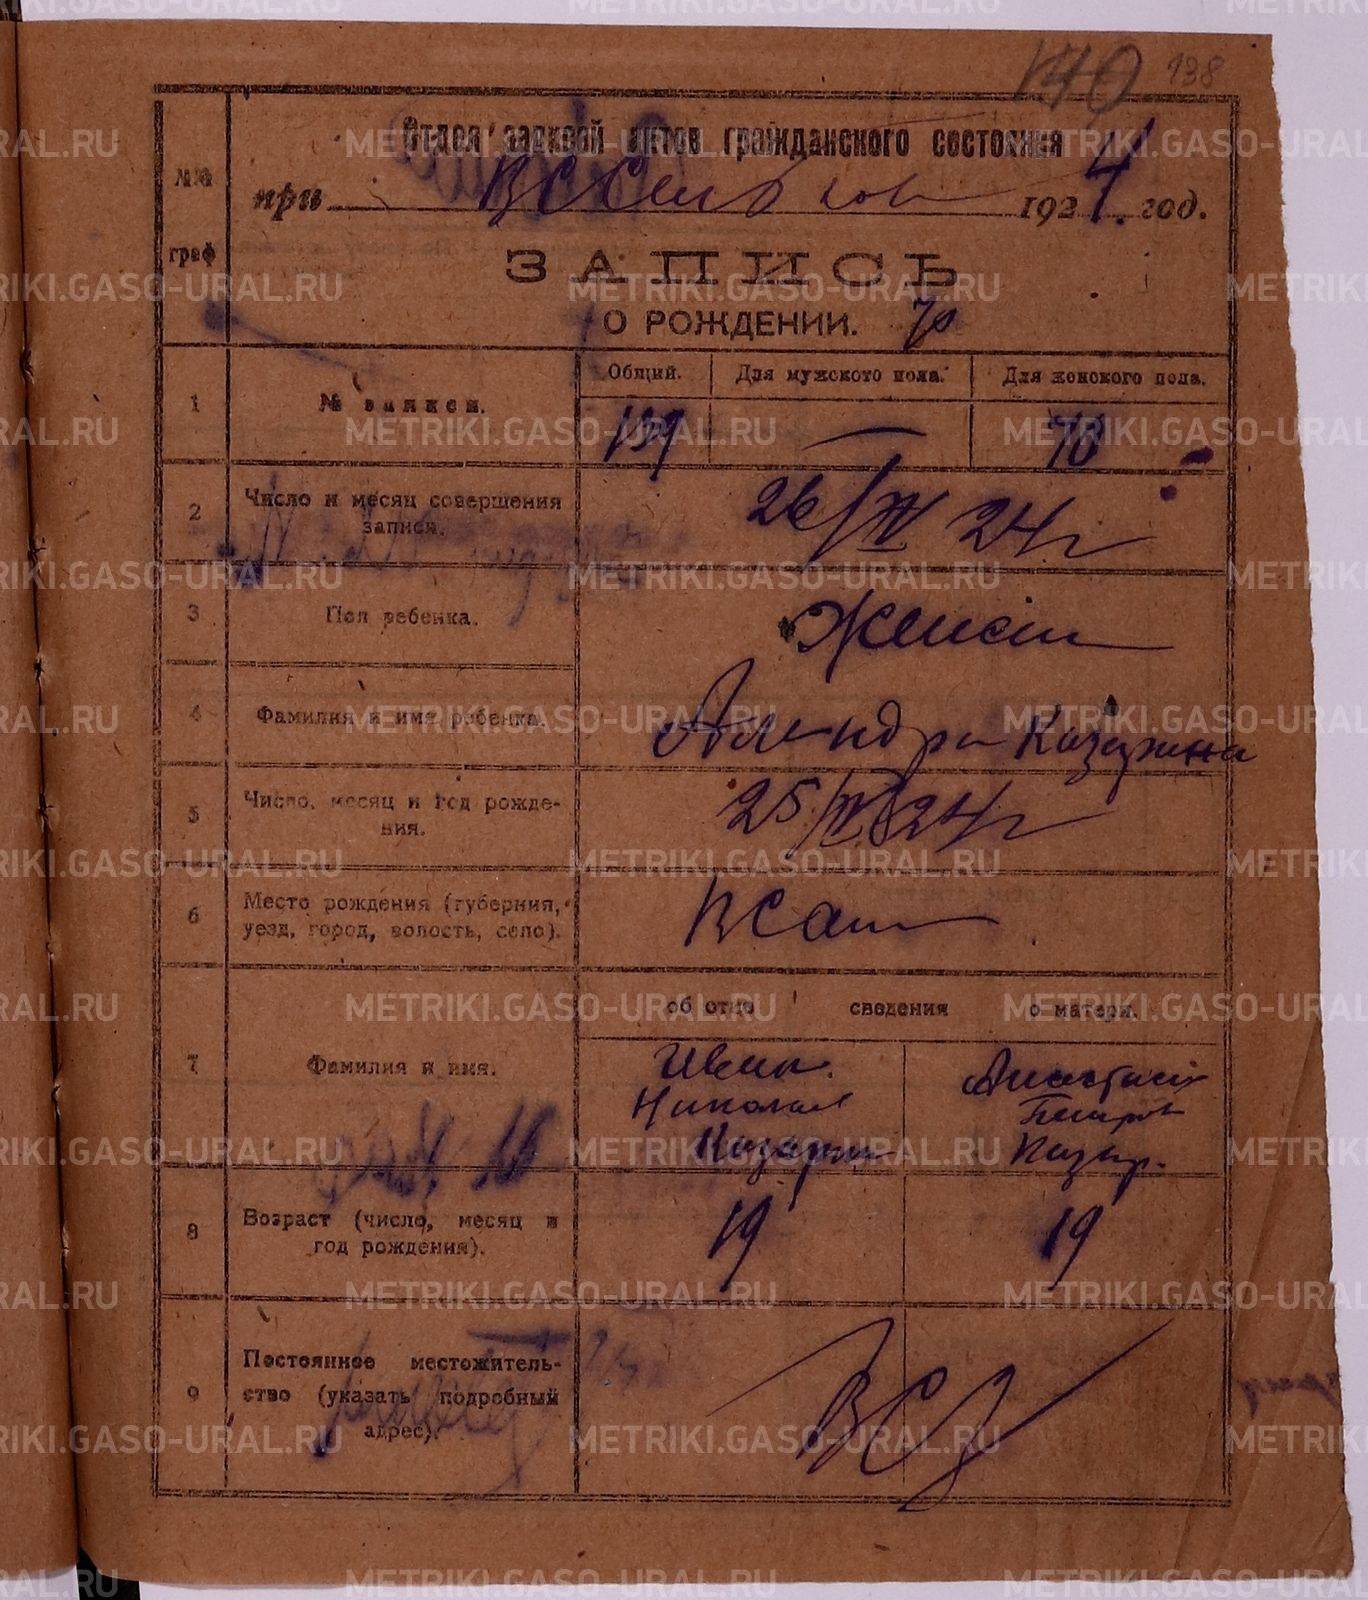 140 138
Отдел записей актов гражданского состояния
при 1924 год.
№№ граф
ЗАПИСЬ
О РОЖДЕНИИ. 70
Общий. Для мужского пола. Для женского пола.
1 № записи. 139 — 70
2 Число и месяц совершения записи. 26/IV 24 г
3 Пол ребенка. Женск
4 Фамилия и имя ребенка. Казарина
5 Число, месяц и год рождения. 25/IV 24 г
6 Место рождения (губерния, уезд, город, волость, село).
об отце сведения о матери.
7 Фамилия и имя.
Иван Анастасия
Николаев Петров
Казарин Казар.
8 Возраст (число, месяц и год рождения). 19 19
9 Постоянное местожительство (указать подробный адрес).
METRIKI.GASO-URAL.RU